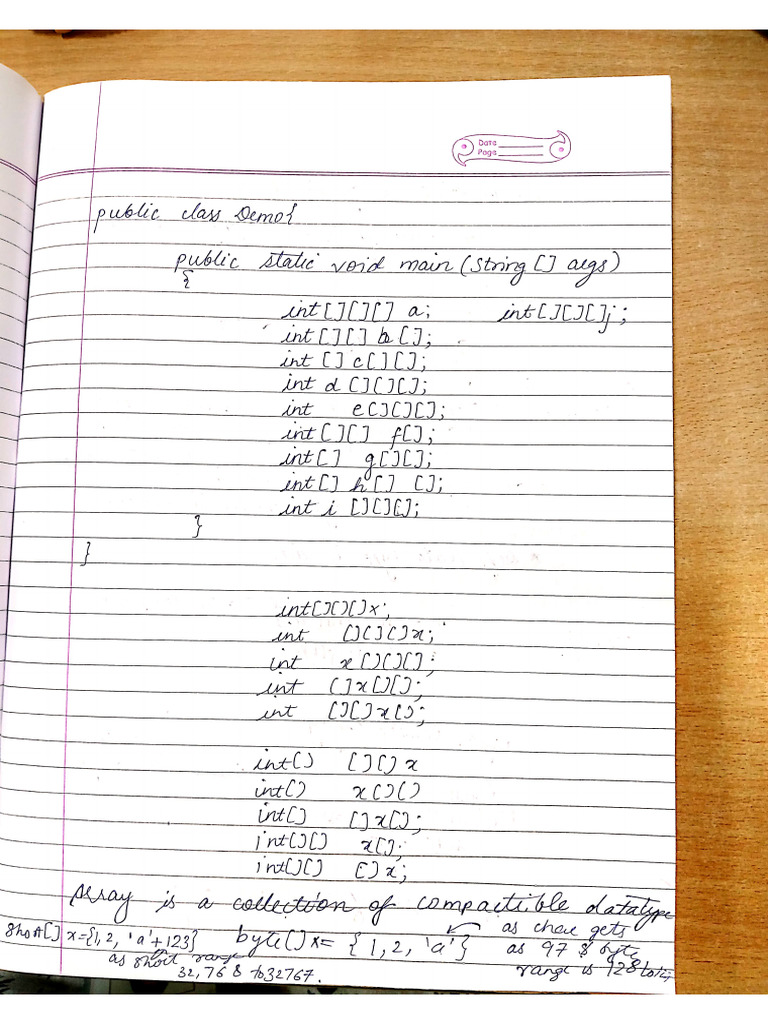 Date
Page
public class Demo{
public static void main (String [] args)
{
int[][][] a; int[][][]j;
int[][] b[];
int [] c[][];
int d [][][];
int e[][][];
int[][] f[];
int[] g[][];
int[] h[] [];
int i [][][];
}
}
int[][][]x;
int [][][]x;
int x[][][];
int []x[][];
int [][]x[];
int[] [][]x
int[] x[][]
int[] []x[];
int[][] x[];
int[][] []x;
Array is a collection of compactible datatype
short[] x={1,2, 'a'+123} byte[]x= {1,2, 'a'} as char gets
as short range as 97 & byte
32,768 to 32767. range is 128 to